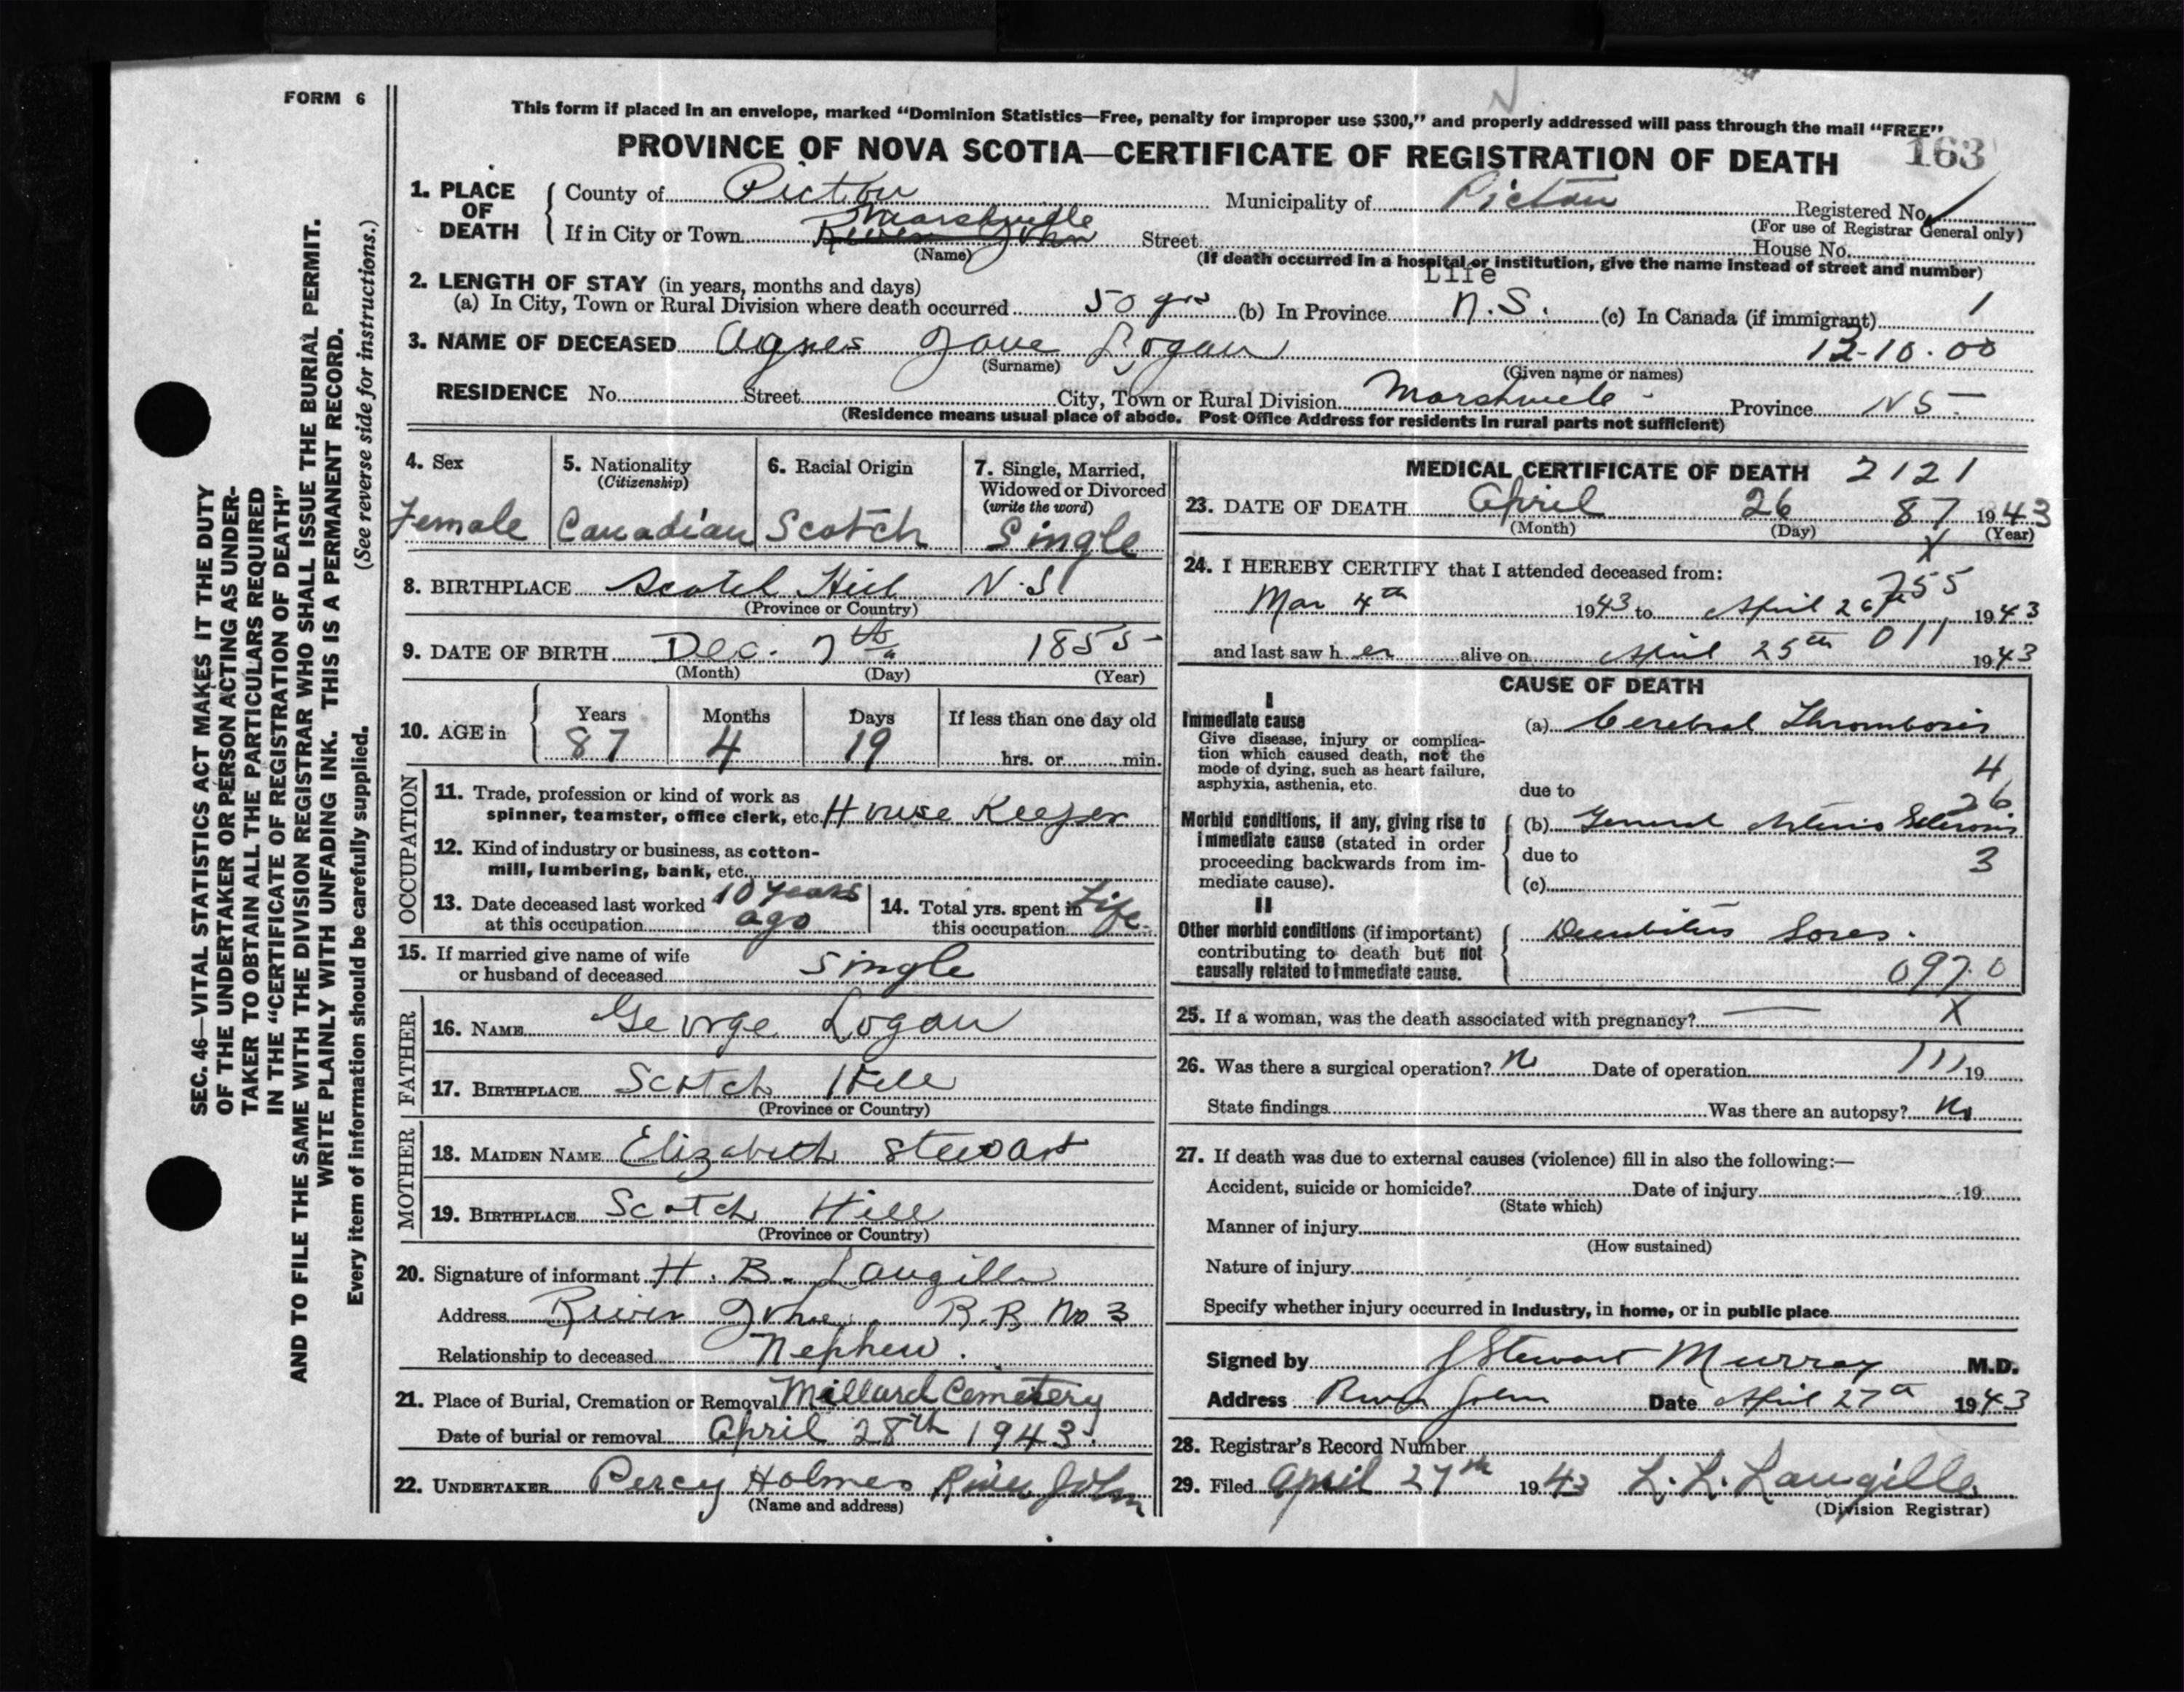 FORM 6
This form if placed in an envelope, marked "Dominion Statistics—Free, penalty for improper use $300," and properly addressed will pass through the mail "FREE"
PROVINCE OF NOVA SCOTIA—CERTIFICATE OF REGISTRATION OF DEATH
163
1. PLACE OF DEATH
County of Pictou Municipality of Pictou Registered No.
(For use of Registrar General only)
If in City or Town River John Marshville Street House No.
(Name) (If death occurred in a hospital or institution, give the name instead of street and number)
2. LENGTH OF STAY (in years, months and days) Life
(a) In City, Town or Rural Division where death occurred 50 yrs (b) In Province N.S. (c) In Canada (if immigrant) 1
3. NAME OF DECEASED Agnes Jane Logan 12-10.00
(Surname) (Given name or names)
RESIDENCE No. Street City, Town or Rural Division Marshville Province N S
(Residence means usual place of abode. Post Office Address for residents in rural parts not sufficient)
4. Sex
Female
5. Nationality
(Citizenship)
Canadian
6. Racial Origin
Scotch
7. Single, Married,
Widowed or Divorced
(write the word)
Single
8. BIRTHPLACE Scotch Hill N.S
(Province or Country)
9. DATE OF BIRTH Dec. 7th 1855
(Month) (Day) (Year)
10. AGE in
Years Months Days If less than one day old
87 4 19 hrs. or min.
OCCUPATION
11. Trade, profession or kind of work as
spinner, teamster, office clerk, etc. House Keeper
12. Kind of industry or business, as cotton-
mill, lumbering, bank, etc.
13. Date deceased last worked 10 years
at this occupation ago
14. Total yrs. spent in
this occupation Life
15. If married give name of wife
or husband of deceased Single
FATHER
16. NAME George Logan
17. BIRTHPLACE Scotch Hill
(Province or Country)
MOTHER
18. MAIDEN NAME Elizabeth Stewart
19. BIRTHPLACE Scotch Hill
(Province or Country)
20. Signature of informant H. B. Langille
Address River John R.R. No 3
Relationship to deceased Nephew.
21. Place of Burial, Cremation or Removal Millard Cemetery
Date of burial or removal April 28th 1943.
22. UNDERTAKER Percy Holmes River John
(Name and address)
MEDICAL CERTIFICATE OF DEATH 2121
23. DATE OF DEATH April 26 87 1943
(Month) (Day) (Year)
X
24. I HEREBY CERTIFY that I attended deceased from:
755
Mar 4th 1943 to April 26th 1943
and last saw her alive on April 25th 011 1943
CAUSE OF DEATH
I
Immediate cause
Give disease, injury or complica-
tion which caused death, not the
mode of dying, such as heart failure,
asphyxia, asthenia, etc.
(a) Cerebral Thrombosis
4
due to
26
Morbid conditions, if any, giving rise to
immediate cause (stated in order
proceeding backwards from im-
mediate cause).
(b) General Arterio Sclerosis
due to 3
(c)
II
Other morbid conditions (if important)
contributing to death but not
causally related to immediate cause.
Decubitus Sores.
097.0
25. If a woman, was the death associated with pregnancy? — X
26. Was there a surgical operation? No Date of operation 111 19
State findings Was there an autopsy? No
27. If death was due to external causes (violence) fill in also the following:—
Accident, suicide or homicide? Date of injury 19
(State which)
Manner of injury
(How sustained)
Nature of injury
Specify whether injury occurred in Industry, in home, or in public place
Signed by J Stewart Murray M.D.
Address River John Date April 27th 1943
28. Registrar's Record Number
29. Filed April 27th 1943 L. L. Langille
(Division Registrar)
SEC. 46—VITAL STATISTICS ACT MAKES IT THE DUTY
OF THE UNDERTAKER OR PERSON ACTING AS UNDER-
TAKER TO OBTAIN ALL THE PARTICULARS REQUIRED
IN THE "CERTIFICATE OF REGISTRATION OF DEATH"
AND TO FILE THE SAME WITH THE DIVISION REGISTRAR WHO SHALL ISSUE THE BURIAL PERMIT.
WRITE PLAINLY WITH UNFADING INK. THIS IS A PERMANENT RECORD.
Every item of information should be carefully supplied. (See reverse side for instructions.)